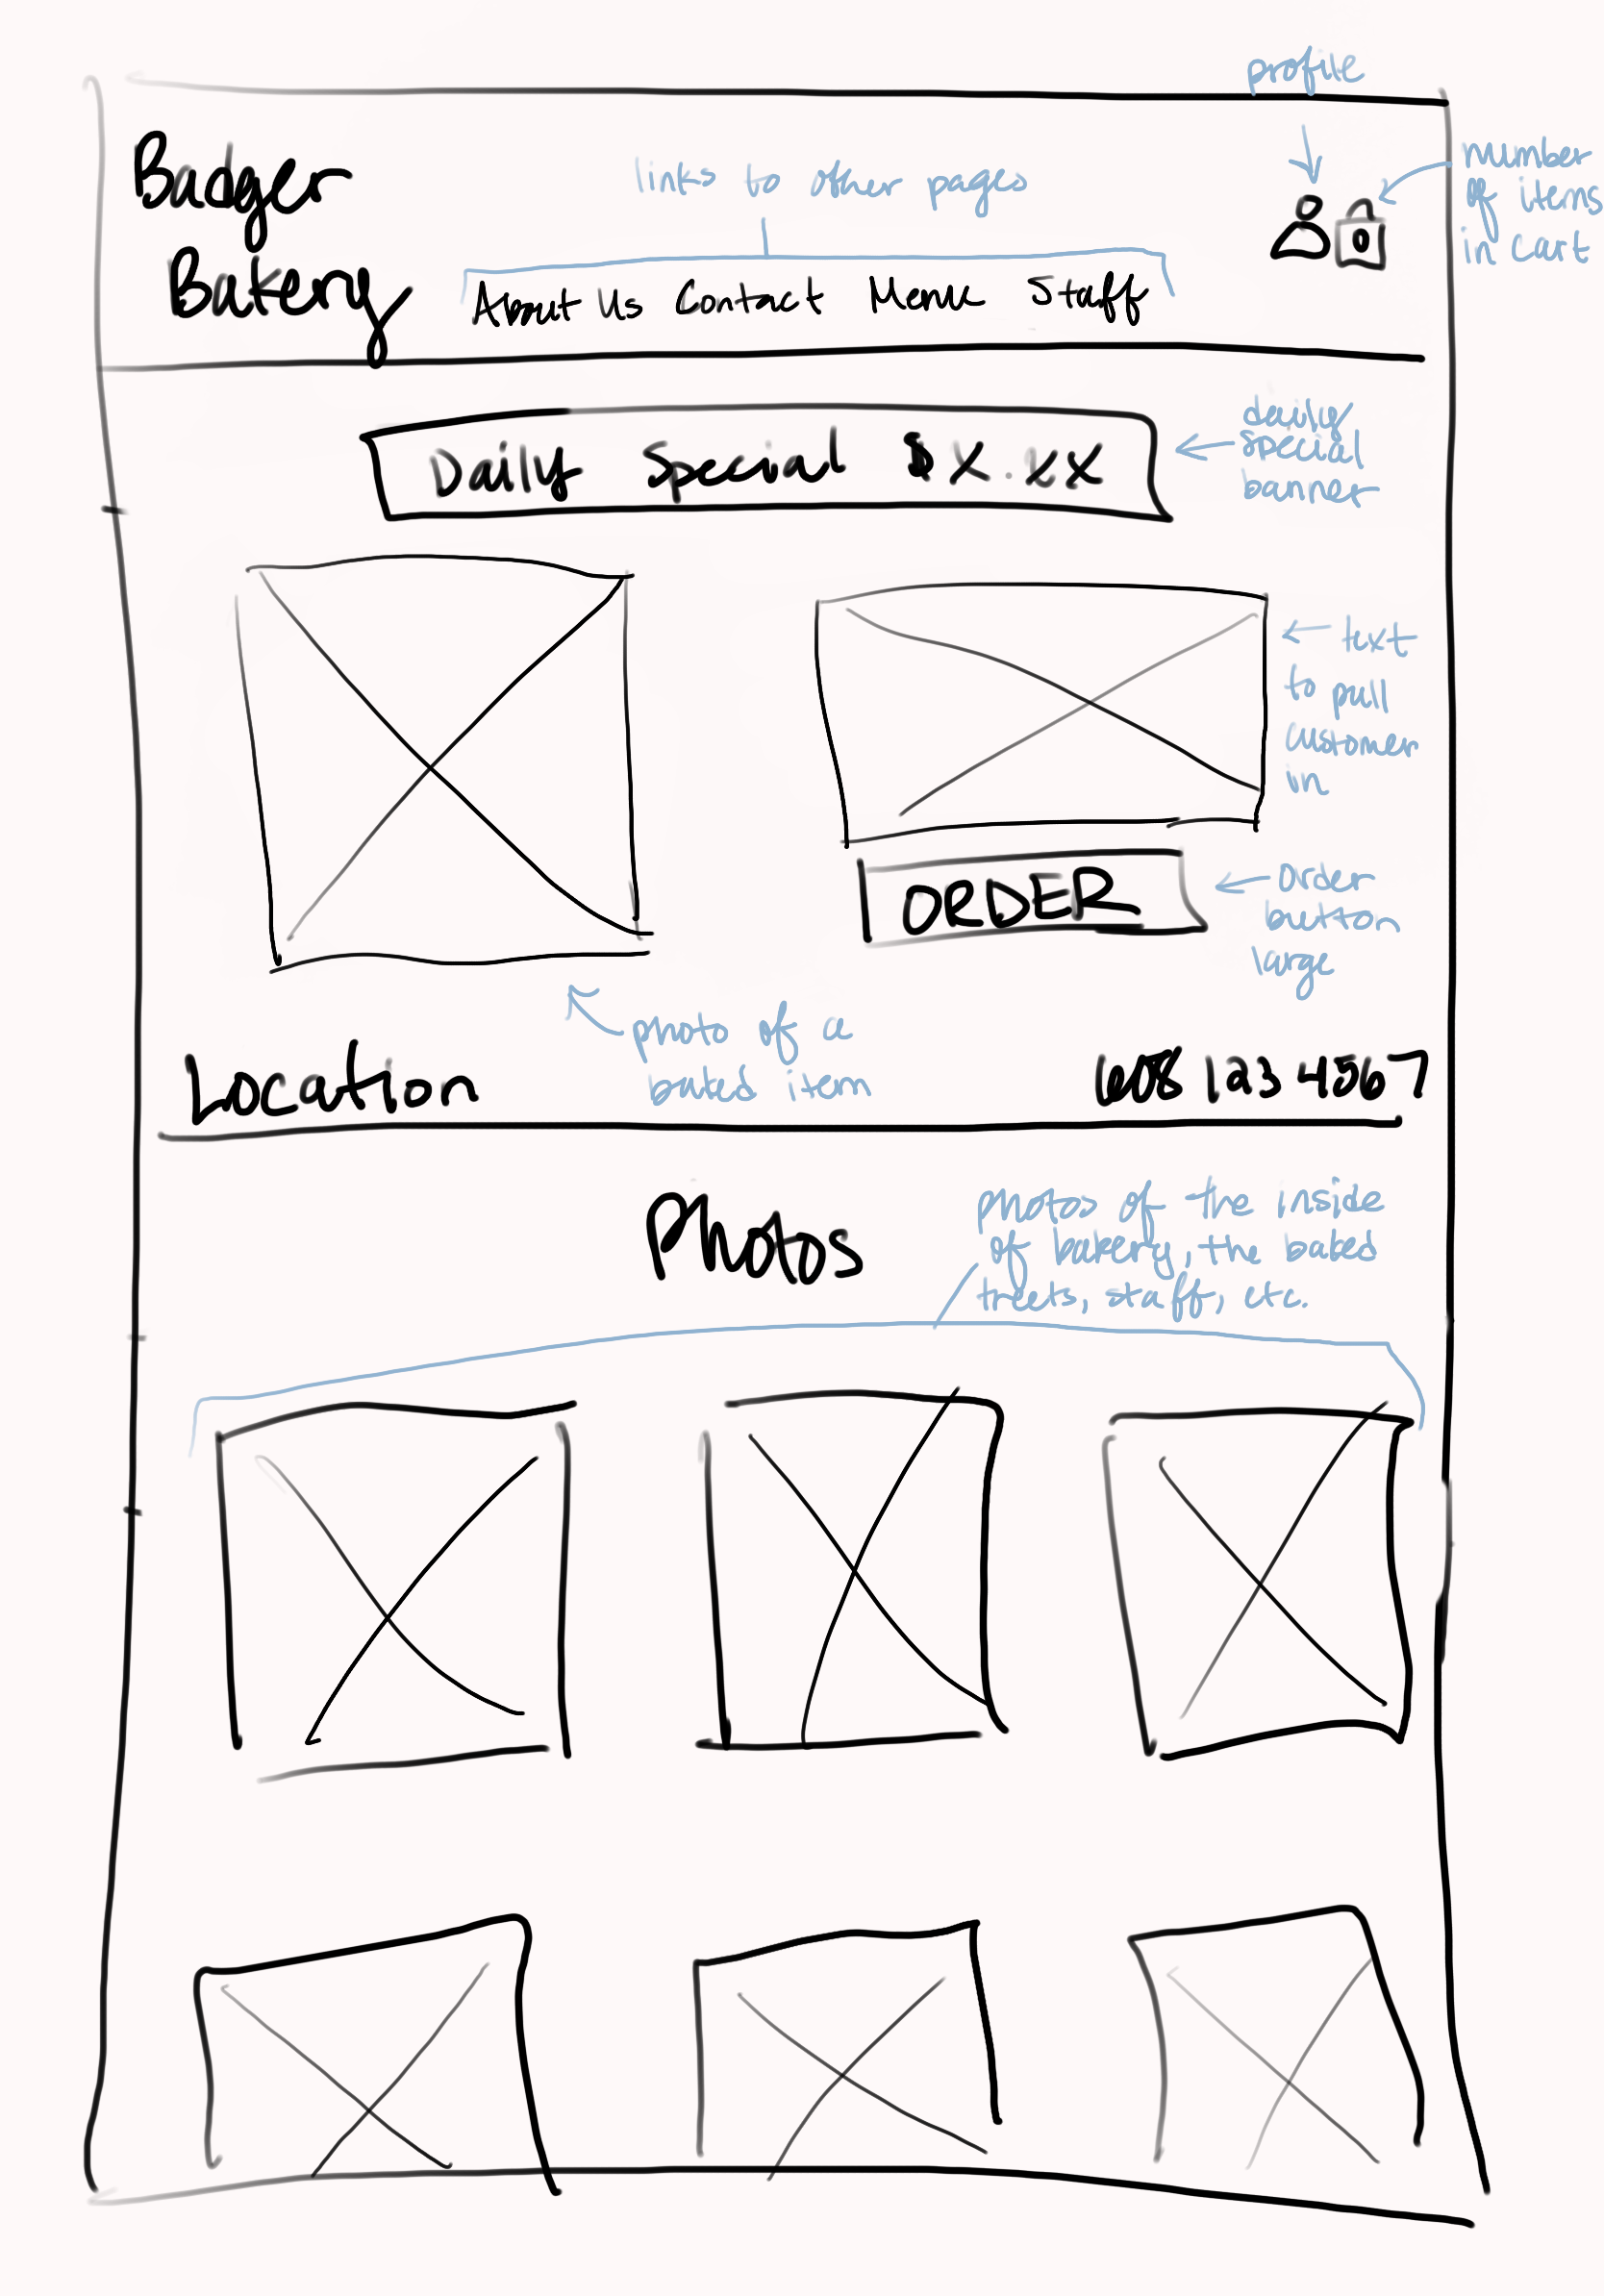 profile
Badger
Bakery
links to other pages
number
of items
in cart
0
About Us Contact Menu Staff
Daily Special $X.XX
daily
special
banner
text
to pull
customer
in
ORDER
order
button
large
photo of a
baked item
Location
608 123 4567
Photos
photos of the inside
of bakery, the baked
treets, staff, etc.